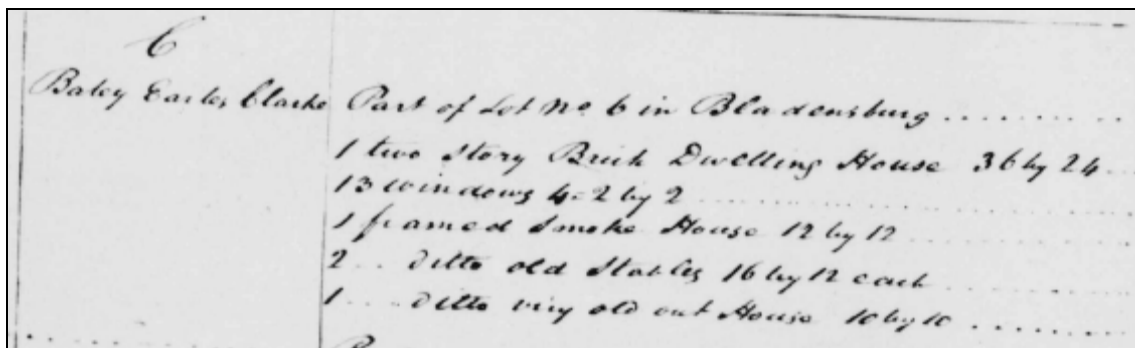 C
Batey Earles Clarke Part of Lot No. 6 in Bladensburg ..........
1 two Story Brick Dwelling House 36 by 24 ..
13 windows 4-2 by 2 ..........
1 framed Smoke House 12 by 12 ..........
2 .. ditto old Stables 16 by 12 each ..........
1 .... ditto very old out House 10 by 10 ........